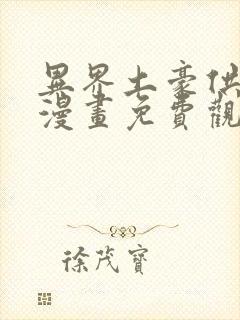 異界土豪供
漫畫免費觀
徐茂寶